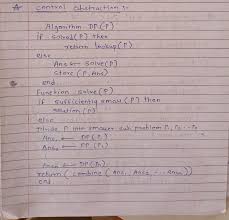 * Control abstraction :-
Algorithm DP(P)
if solved(P) then
return lookup(P)
else
Ans ← solve(P)
Store (P, Ans)
end
Function solve(P)
if sufficiently small(P) then
solution(P)
else
Divide P into smaller sub problem P1, P2...Pn
Ans1 ← DP(P1)
Ans2 ← DP(P2)
Ansn ← DP(Pn)
return (combine (Ans1, Ans2, ... Ansn))
end.